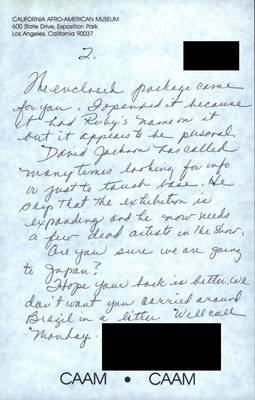 CALIFORNIA AFRO-AMERICAN MUSEUM
600 State Drive, Exposition Park
Los Angeles, California 90037
2.
The enclosed package came
for you. I opened it because
it had Ruby's name on it
but it appears to be personal.
David Jackson has called
many times looking for info
or just to touch base. He
says that the exhibition is
expanding and he now needs
a few dead artists in the show.
Are you sure we are going
to Japan?
Hope your back is better, we
don't want you carried around
Brazil in a litter. Will call
Monday.
CAAM • CAAM